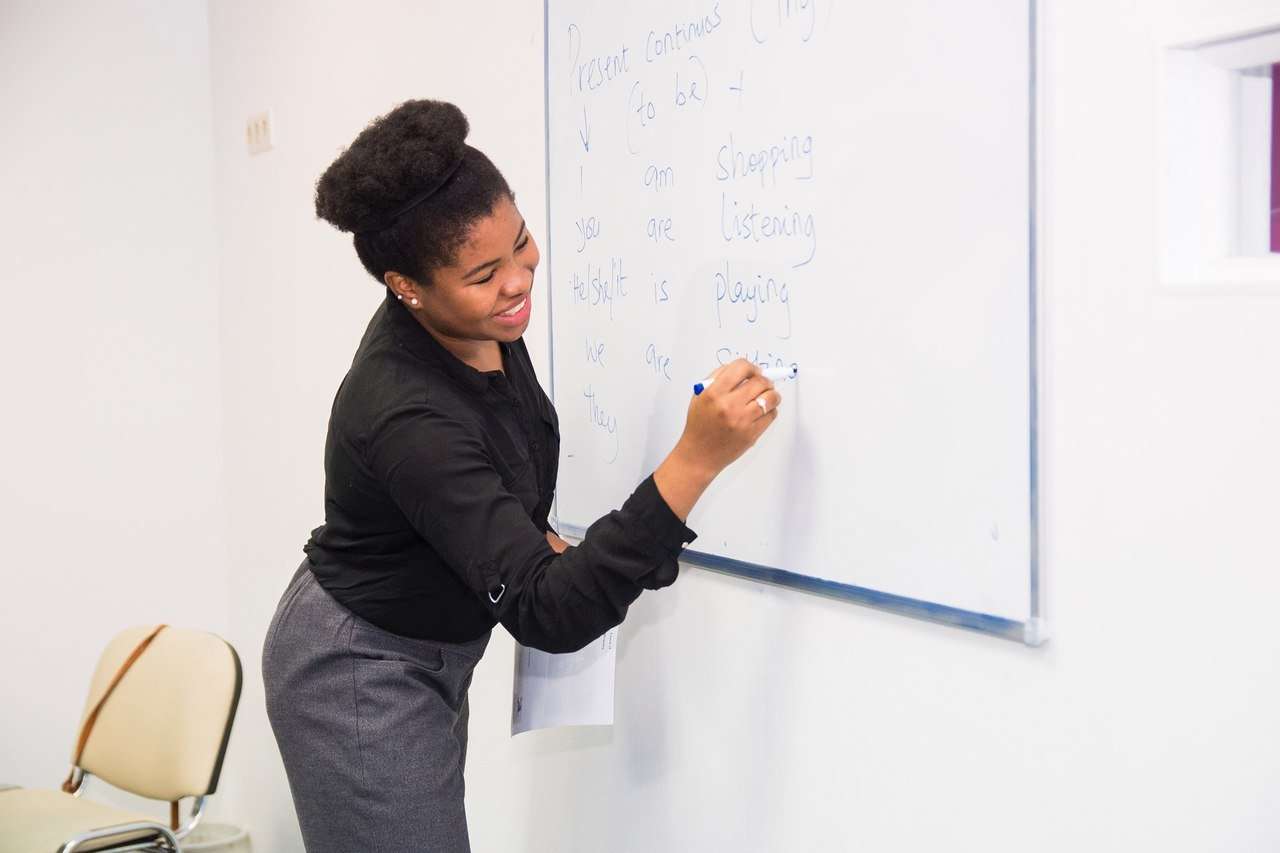 Present continuos (ing)
↓ (to be) +
I am shopping
you are Listening
He/she/it is playing
we are sitting
they